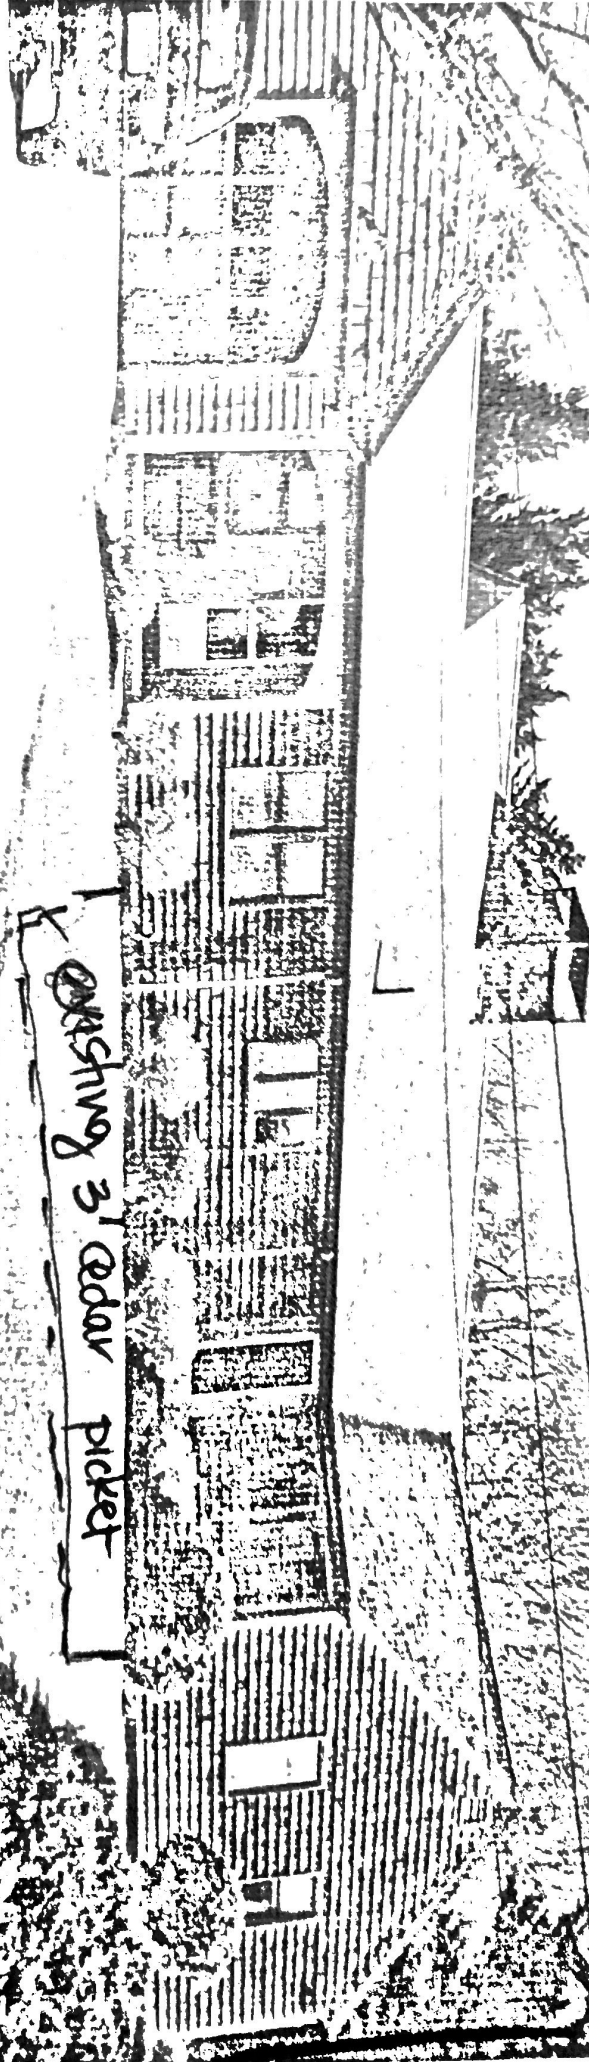 existing 3' cedar picket